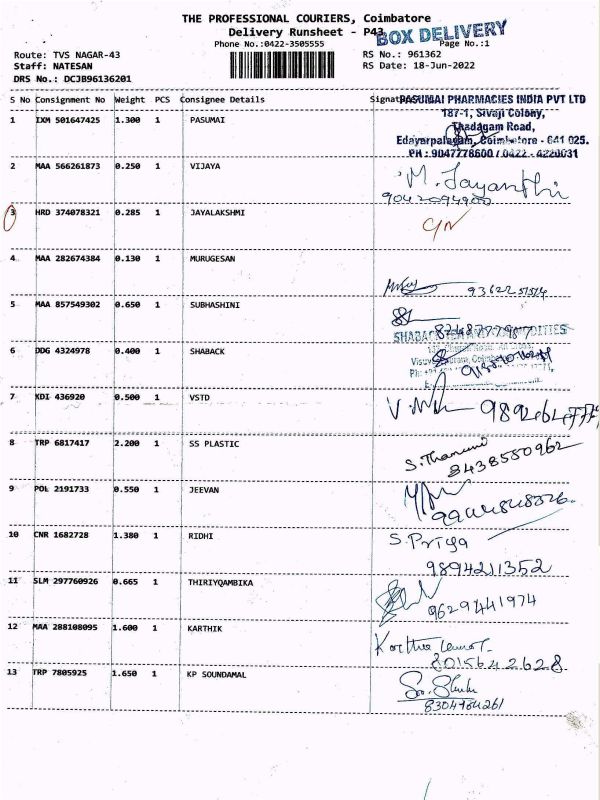 THE PROFESSIONAL COURIERS, Coimbatore
Delivery Runsheet - P43
BOX DELIVERY
Phone No.:0422-3505555
Page No.:1
Route: TVS NAGAR-43
RS No.: 961362
Staff: NATESAN
RS Date: 18-Jun-2022
DRS No.: DCJB96136201
S No Consignment No Weight PCS Consignee Details
PASUMAI PHARMACIES INDIA PVT LTD
187-1, Sivaji Colony,
Thadagam Road,
Edayarpalayam, Coimbatore - 641 025.
PH : 9047778600 / 0422 - 4220031
1 IXM 501647425 1.300 1 PASUMAI
2 MAA 566261873 0.250 1 VIJAYA
M. Jayanthi
9042094900
3 HRD 374078321 0.285 1 JAYALAKSHMI
4 MAA 282674384 0.130 1 MURUGESAN
5 MAA 857549302 0.650 1 SUBHASHINI
6 DDG 4324978 0.400 1 SHABACK
7 KDI 436920 0.500 1 VSTD
8 TRP 6817417 2.200 1 SS PLASTIC
8438550962
9 POL 2191733 0.550 1 JEEVAN
10 CNR 1682728 1.380 1 RIDHI
S. Priya
9894211352
11 SLM 297760926 0.665 1 THIRIYQAMBIKA
9629441974
12 MAA 288108095 1.600 1 KARTHIK
8015642628
13 TRP 7805925 1.650 1 KP SOUNDAMAL
8304184261